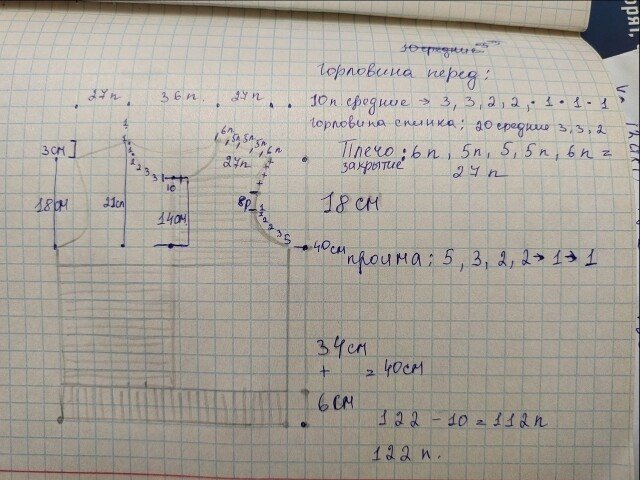 10 средние
горловина перед:
27п. 36п. 27п.
10п средние → 3, 3, 2, 2, · 1 · 1 · 1
горловина спинка; 20 средние 3, 3, 2
Плечо: 6п, 5п, 5, 5п, 6п =
закрытие 27п
6п 5п 5п 5п 6п
27п
1
1
1
2 3 3
10
3см
18см
21сп
14см
8р
1
2
2
3
5
40см
18см
пройма: 5, 3, 2, 2 → 1 → 1
34см
+ = 40см
6см
122 - 10 = 112п
122п.